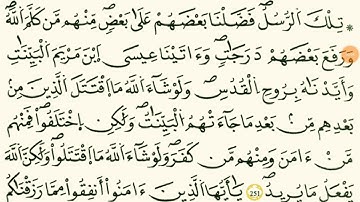 * تِلْكَ اَ۬لرُّسُلُ فَضَّلْنَا بَعْضَهُمْ عَلَىٰ بَعْضٖۖ مِّنْهُم مَّن كَلَّمَ اَ۬للَّهُۖ
وَرَفَعَ بَعْضَهُمْ دَرَجَٰتٖۖ وَءَاتَيْنَا عِيسَى اَ۪بْنَ مَرْيَمَ اَ۬لْبَيِّنَٰتِ
وَأَيَّدْنَٰهُ بِرُوحِ اِ۬لْقُدُسِۖ وَلَوْ شَآءَ اَ۬للَّهُ مَا اَ۪قْتَتَلَ اَ۬لذِينَ مِنۢ
بَعْدِهِم مِّنۢ بَعْدِ مَا جَآءَتْهُمُ اُ۬لْبَيِّنَٰتُۖ وَلَٰكِنِ اِ۪خْتَلَفُواْۖ فَمِنْهُم
مَّنْ ءَامَنَ وَمِنْهُم مَّن كَفَرَۖ وَلَوْ شَآءَ اَ۬للَّهُ مَا اَ۪قْتَتَلُواْۖ وَلَٰكِنَّ اَ۬للَّهَ
يَفْعَلُ مَا يُرِيدُۖ 251 يَٰٓأَيُّهَا اَ۬لذِينَ ءَامَنُوٓاْ أَنفِقُواْ مِمَّا رَزَقْنَٰكُم